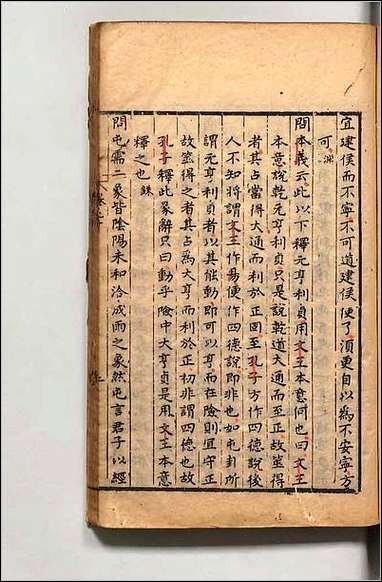 宜建侯而不寧不可道建侯便了須更自以為不安寧方
可 淵
問本義云此以下釋元亨利貞用文王本意何也曰文王
本意說乾元亨利貞只是說乾道大通而至正故筮得
者其占當得大通而利於正固至孔子方作四德說後
人不知將謂文王作易便作四德說即非也如屯卦所
謂元亨利貞者以其能動即可以亨而在險則宜守正
故筮得之者其占為大亨而利於正初非謂四德也故
孔子釋此彖辭只曰動乎險中大亨貞是用文王本意
釋之也 銖
問屯需二象皆陰陽未和洽成雨之象然屯言君子以經